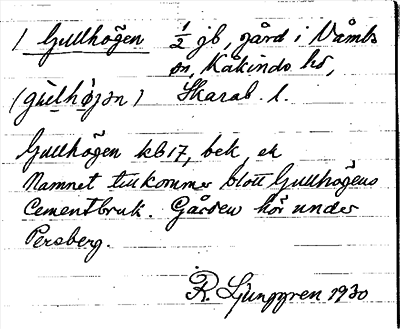 1 Gullhögen 1/2 jb, gård i Våmbs
sn, Kåkinds hd,
(gùlhø̀jən) Skarab. l.
Gullhögen kb 17, bek, ek
Namnet tillkommer blott Gullhögens
Cementbruk. Gården hör under
Persberg.
R. Ljunggren 1930